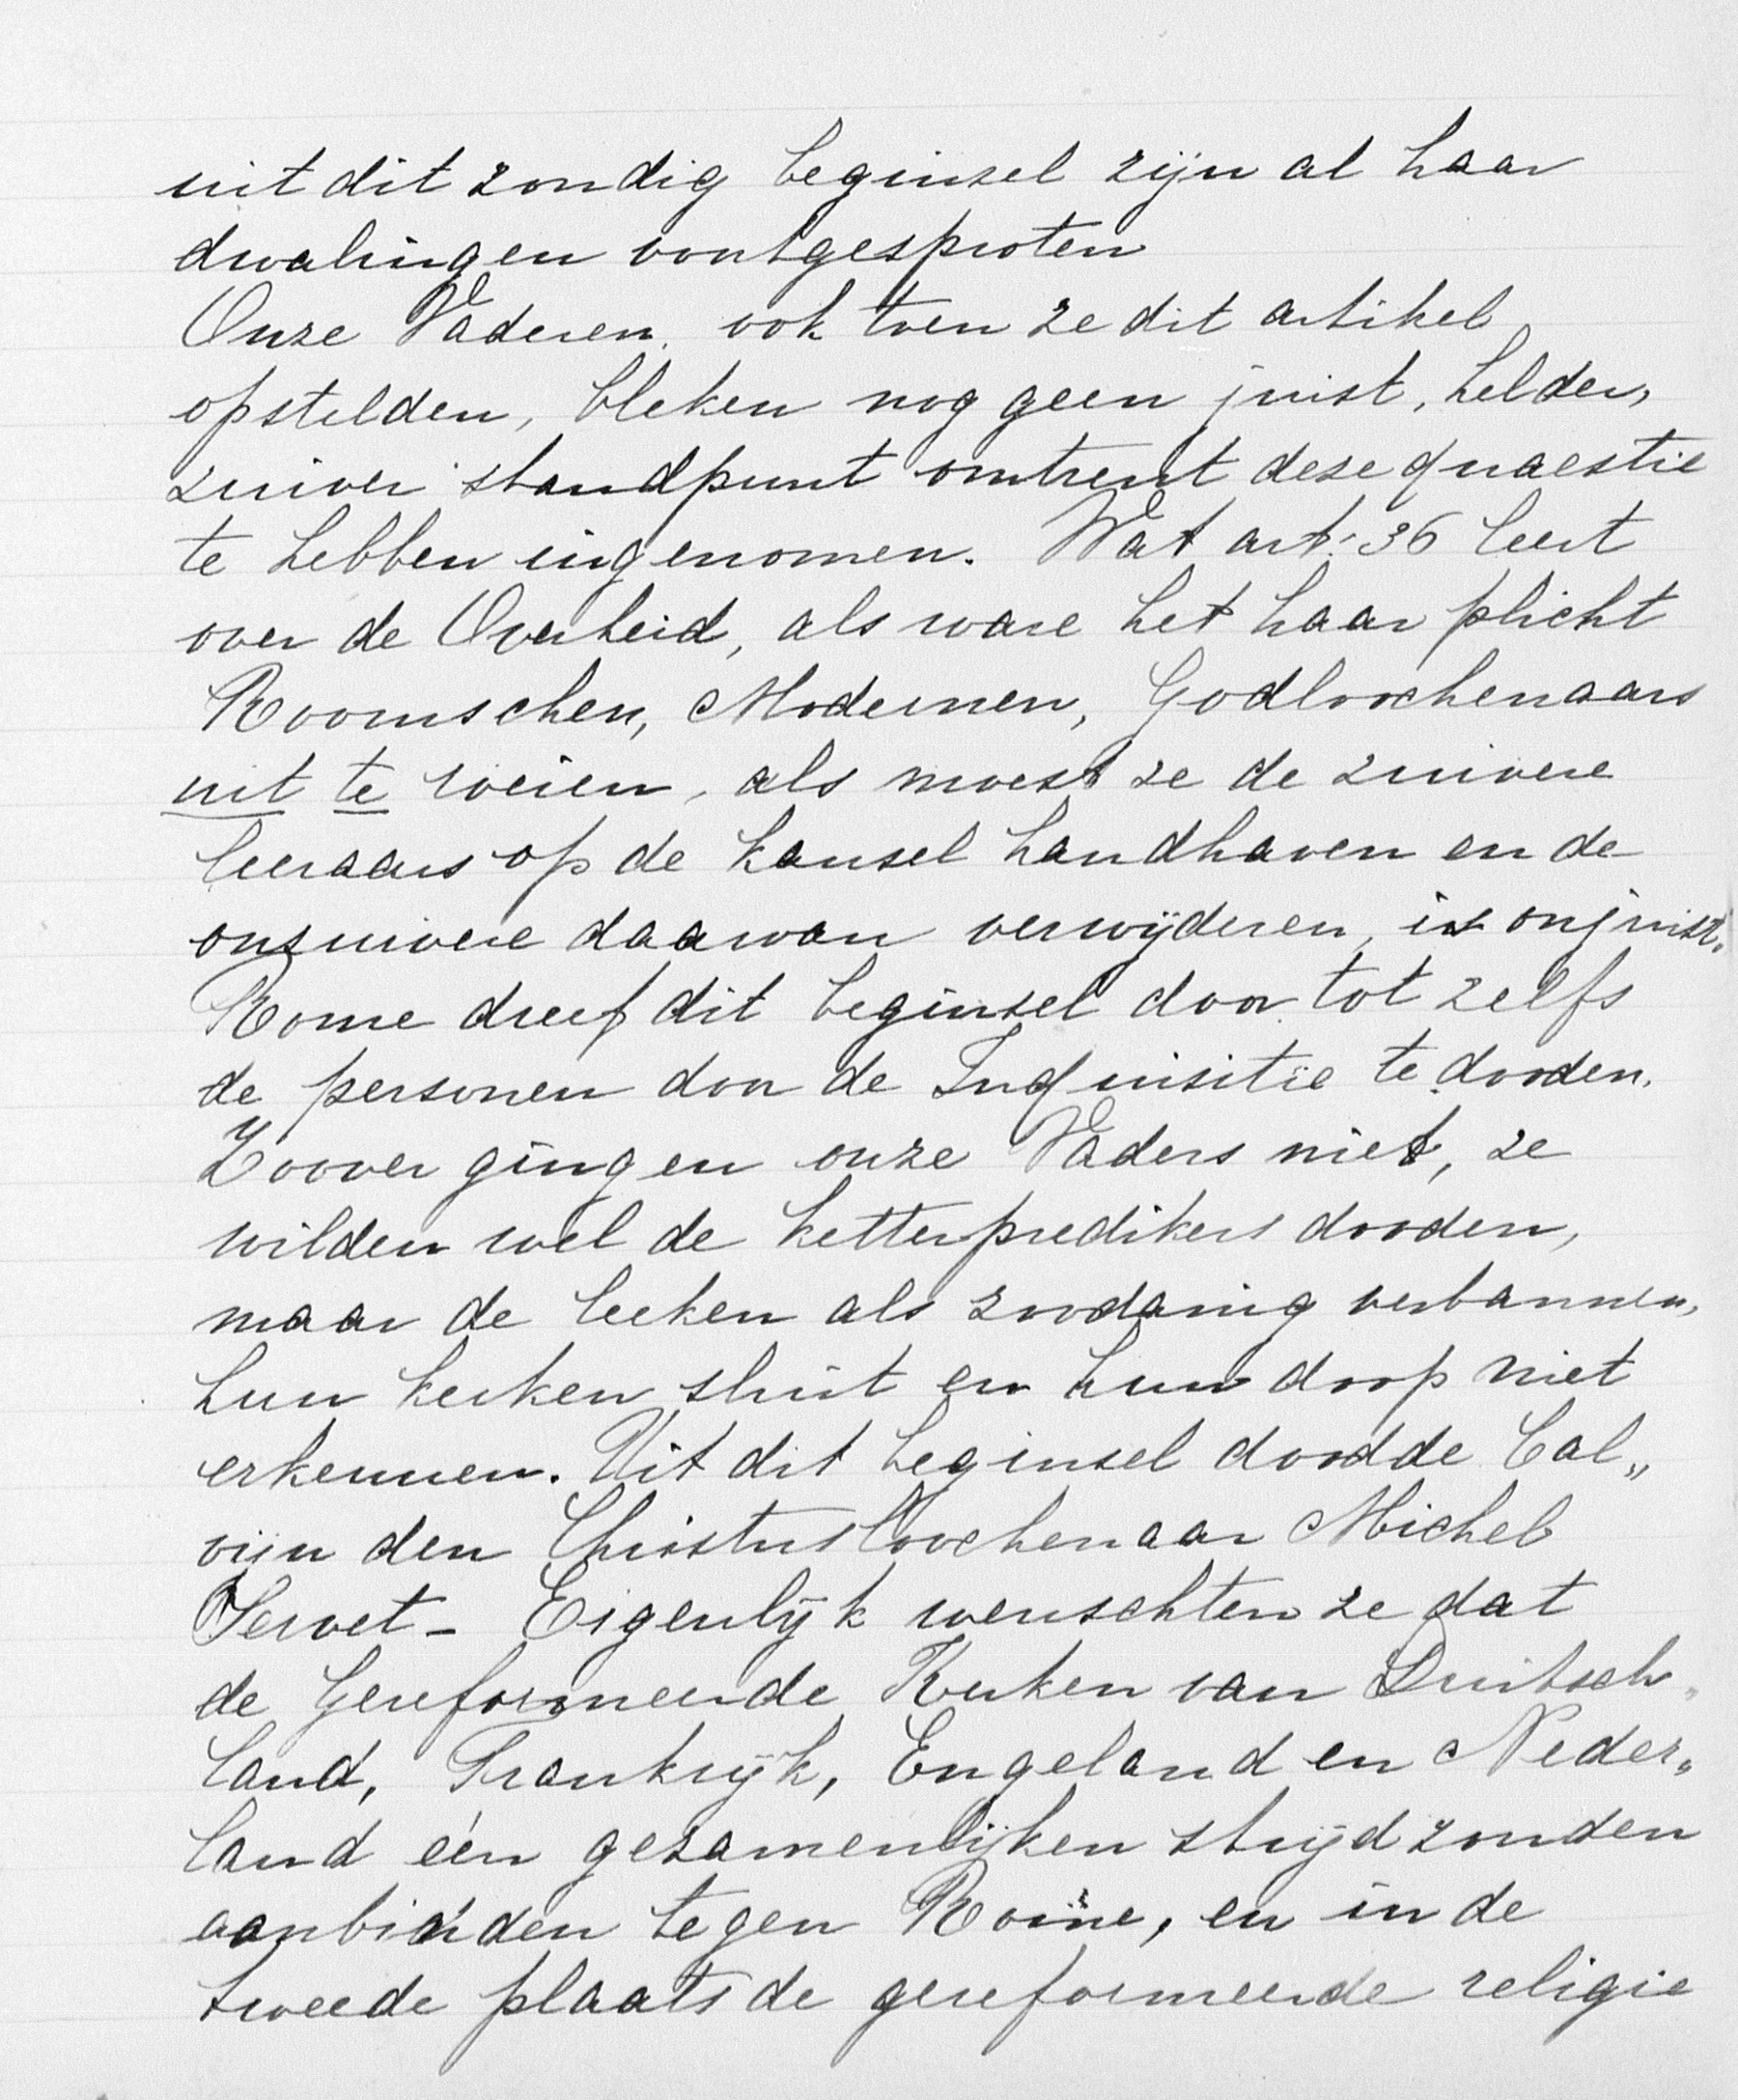 uit dit zondig beginsel zijn al haar
dwalingen voortgesproten
Onze Vaderen, ook toen ze dit artikel
opstelden, bleken nog geen juist, helder,
zuiver standpunt omtrent deze quaestie
te hebben ingenomen. Wat art: 36 leert
over de Overheid, als ware het haar plicht
Roomschen, Modernen, Godloochenaars
uit te roeien, als moest ze de zuivere
leeraars op de kansel handhaven en de
onzuivere daarvan verwijderen, is onjuist.
Rome dreef dit beginsel door tot zelfs
de personen door de Inquisitie te dooden.
Zoover gingen onze Vaders niet, ze
wilden wel de ketterpredikers dooden,
maar de leeken als zoodanig verbannen,
hun kerken sluit en hun doop niet
erkennen. Uit dit beginsel doodde Cal„
vijn den Christusloochenaar Michel
Servet - Eigenlijk wenschten ze dat
de Gereformeerde Kerken van Duitsch„
land, Frankrijk, Engeland en Neder„
land één gezamenlijken strijd zouden
aanbinden tegen Rome, en in de
tweede plaats de gereformeerde religie